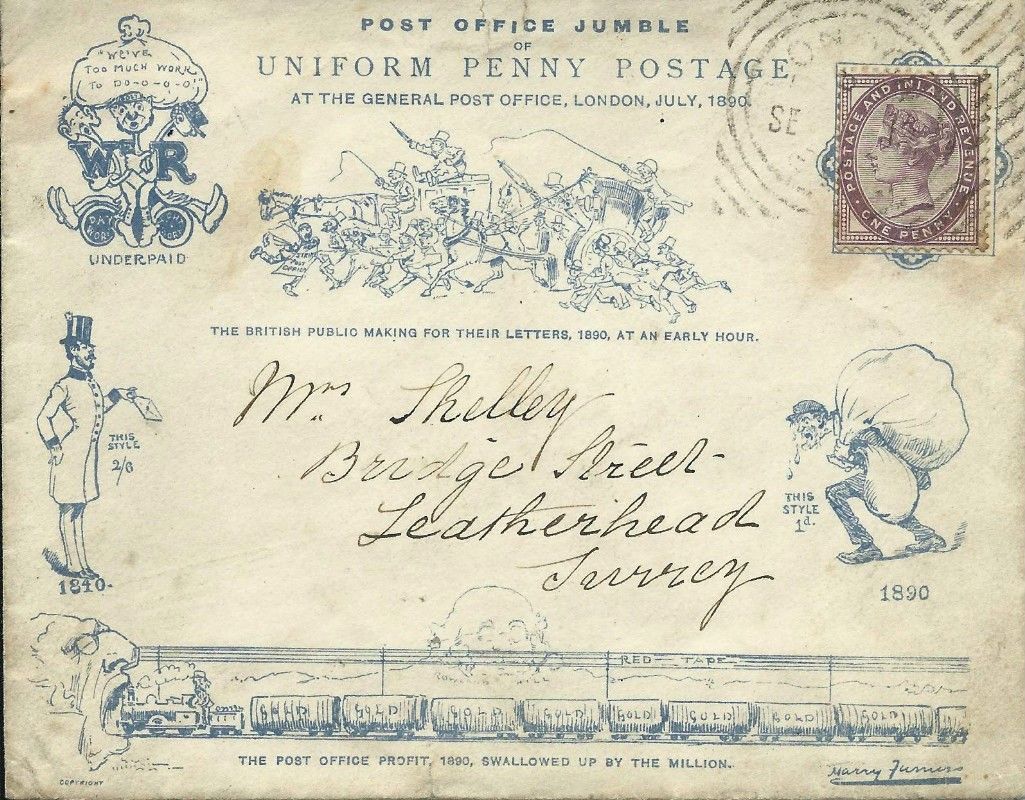 POST OFFICE JUMBLE
OF
UNIFORM PENNY POSTAGE
AT THE GENERAL POST OFFICE, LONDON, JULY, 1890.
"WE'VE
TOO MUCH WORK
TO DO-O-O-O!"
W R
PAY
UNDERPAID
SE
POSTAGE AND INLAND REVENUE
ONE PENNY
STRIKE
POST
OFFICE
THE BRITISH PUBLIC MAKING FOR THEIR LETTERS, 1890, AT AN EARLY HOUR.
Mrs Shelley
Bridge Street
Leatherhead
Surrey
THIS
STYLE
2/6
1840.
THIS
STYLE
1d.
1890
RED-TAPE
GOLD GOLD GOLD GOLD GOLD GOLD GOLD GOLD
THE POST OFFICE PROFIT, 1890, SWALLOWED UP BY THE MILLION.
COPYRIGHT
Harry Furniss